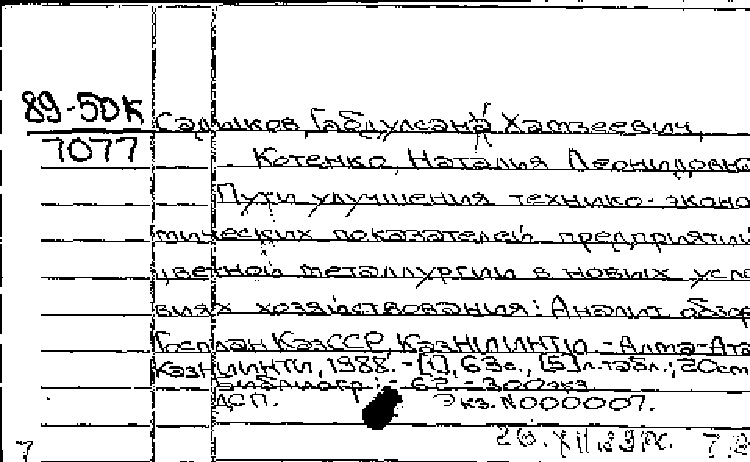 89-50К
7077
Садыков, Габдулсана Хамзеевич,
Котенко, Наталия Леонидовна
Пути улучшения технико-эконо-
мических показателей предприятий
цветной металлургии в новых усло-
виях хозяйствования: Аналит. обзор
Госплан КазССР, КазНИИНТИ. - Алма-Ата
КазНИИНТИ, 1988. - [1], 63 с., [5] л. табл.; 20 cm
Библиогр.: - 62 - 300 экз.
ДСП. Экз. N000007.
7